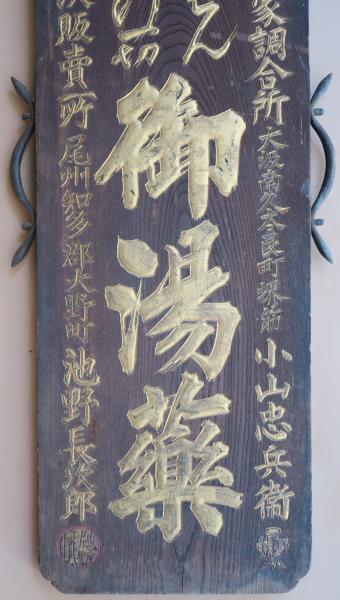 家調合所 大阪南久太良町堺筋 小山忠兵衞
せん
御湯藥
一切
販賣所 尾州知多郡大野町 池野長次郎